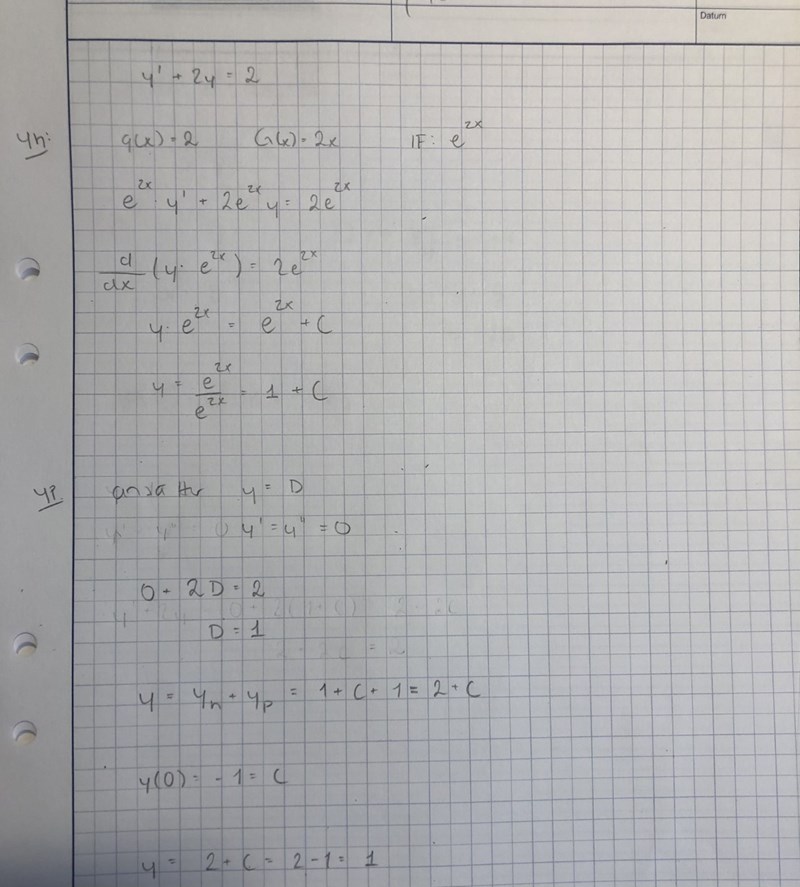 Datum
y' + 2y = 2
yh: g(x) = 2 G(x) = 2x IF: e^{2x}
e^{2x} y' + 2e^{2x} y = 2e^{2x}
d/dx (y · e^{2x}) = 2e^{2x}
y · e^{2x} = e^{2x} + C
y = e^{2x}/e^{2x} = 1 + C
yp ansätter y = D
y' = y'' = 0
0 + 2D = 2
D = 1
y = y_h + y_p = 1 + C + 1 = 2 + C
y(0) = -1 = C
y = 2 + C = 2 - 1 = 1